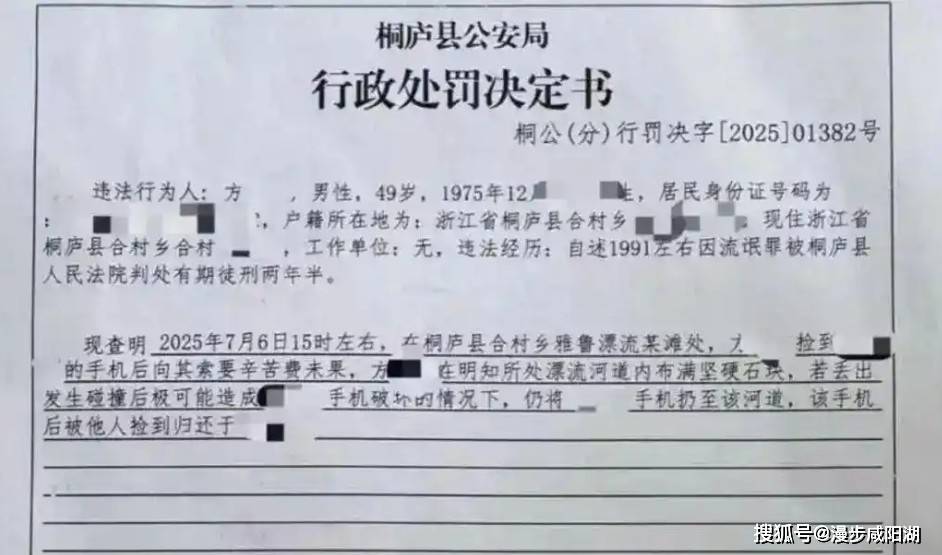 桐庐县公安局
行政处罚决定书
桐公(分)行罚决字[2025]01382号
违法行为人：方 ，男性，49岁，1975年12 生，居民身份证号码为
： ，户籍所在地为：浙江省桐庐县合村乡 现住浙江省
桐庐县合村乡合村 ，工作单位：无，违法经历：自述1991左右因流氓罪被桐庐县
人民法院判处有期徒刑两年半。
现查明 2025年7月6日15时左右，在桐庐县合村乡雅鲁漂流某滩处，方 捡到
的手机后向其索要辛苦费未果，方 在明知所处漂流河道内布满坚硬石块，若丢出
发生碰撞后极可能造成 手机破坏的情况下，仍将 手机扔至该河道，该手机
后被他人捡到归还于
搜狐号@漫步咸阳湖